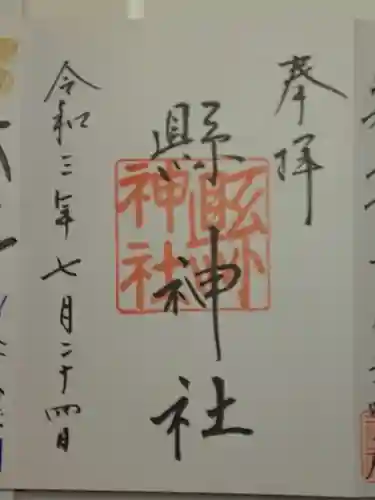 奉拝
縣神社
縣神社
令和三年七月二十四日